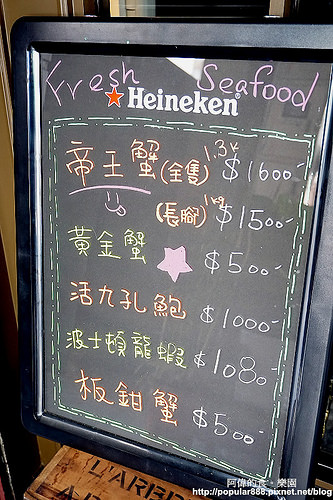 Fresh Seafood
Heineken
帝王蟹(全隻) 1.3k $1600
(長腳) 1kg $1500
黃金蟹 $500
活九孔鮑 $1000
波士頓龍蝦 $1080
板鉗蟹 $500
L'ARBI
阿偉的食。樂園
http://popular888.pixnet.net/blog